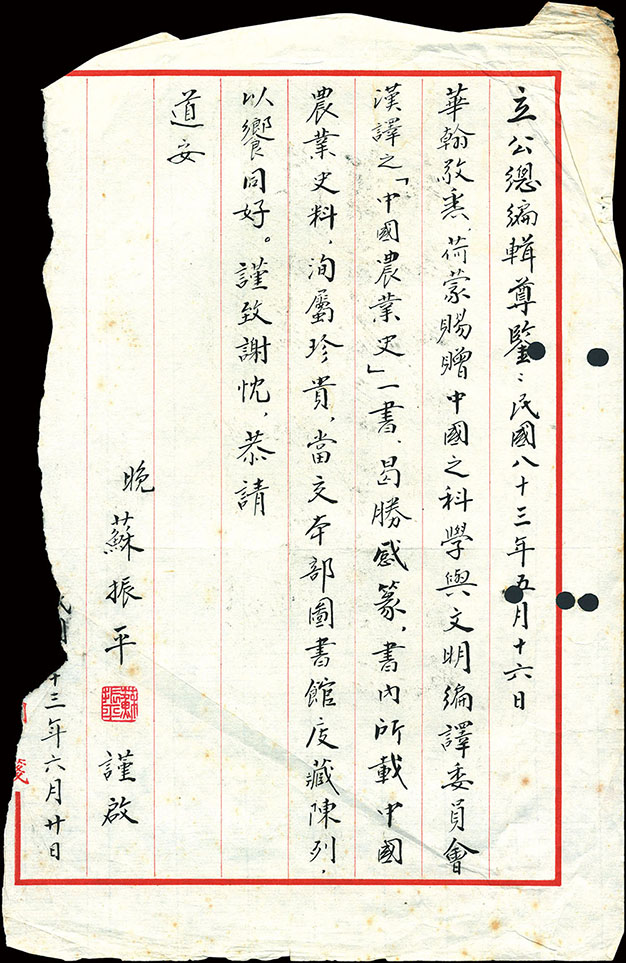 立公總編輯尊鑒：民國八十三年五月十六日
華翰敬悉，荷蒙賜贈中國之科學與文明編譯委員會
漢譯之「中國農業史」一書、曷勝感篆，書內所載中國
農業史料，洵屬珍貴，當交本部圖書館庋藏陳列，
以饗同好。謹致謝忱，恭請
道安
晚蘇振平
蘇振
謹啟
十三年六月廿日
箋